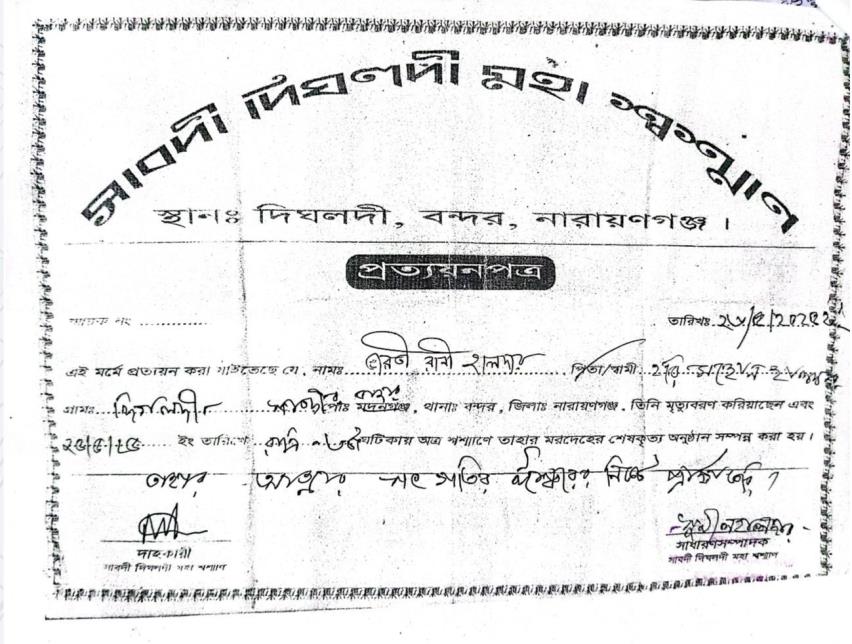 সাবদী দিঘলদী মহা শ্মশান
স্থানঃ দিঘলদী, বন্দর, নারায়ণগঞ্জ।
প্রত্যয়নপত্র
স্মারক নং ............
তারিখঃ
এই মর্মে প্রত্যয়ন করা যাইতেছে যে, নামঃ রানী হালদার পিতা/স্বামী
গ্রামঃ দিঘলদী পোঃ মদনগঞ্জ, থানাঃ বন্দর, জিলাঃ নারায়ণগঞ্জ, তিনি মৃত্যুবরণ করিয়াছেন এবং
ইং তারিখে রাত্রি ঘটিকায় অত্র শ্মশাণে তাহার মরদেহের শেষকৃত্য অনুষ্ঠান সম্পন্ন করা হয়।
তাহার আত্মার সৎ গতির ঈশ্বরের নিকট প্রার্থনা করি।
দাহকারী
সাবদী দিঘলদী মহা শ্মশান
সাধারণ সম্পাদক
সাবদী দিঘলদী মহা শ্মশান